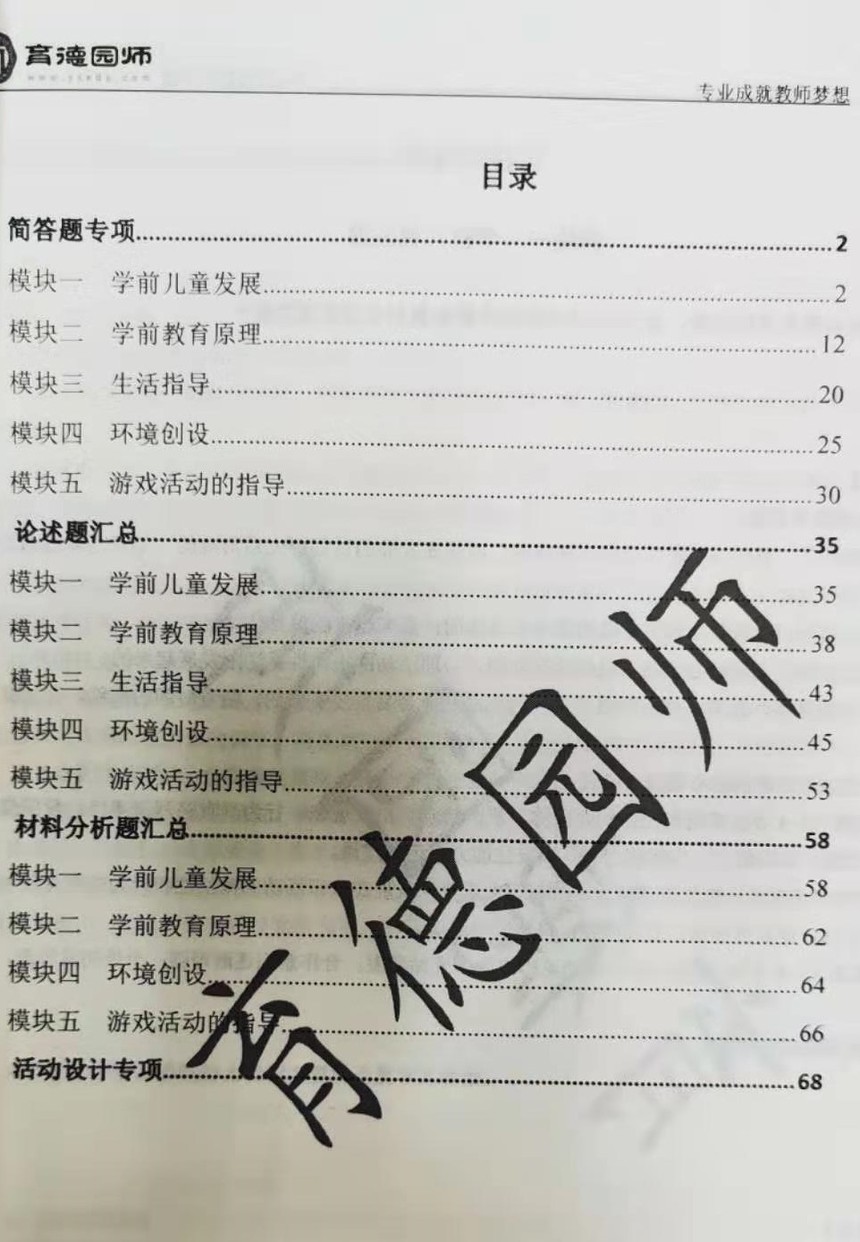 育德园师
专业成就教师梦想
目录
简答题专项........................2
模块一 学前儿童发展........................2
模块二 学前教育原理........................12
模块三 生活指导........................20
模块四 环境创设........................25
模块五 游戏活动的指导........................30
论述题汇总........................35
模块一 学前儿童发展........................35
模块二 学前教育原理........................38
模块三 生活指导........................43
模块四 环境创设........................45
模块五 游戏活动的指导........................53
材料分析题汇总........................58
模块一 学前儿童发展........................58
模块二 学前教育原理........................62
模块四 环境创设........................64
模块五 游戏活动的指导........................66
活动设计专项........................68
育德园师